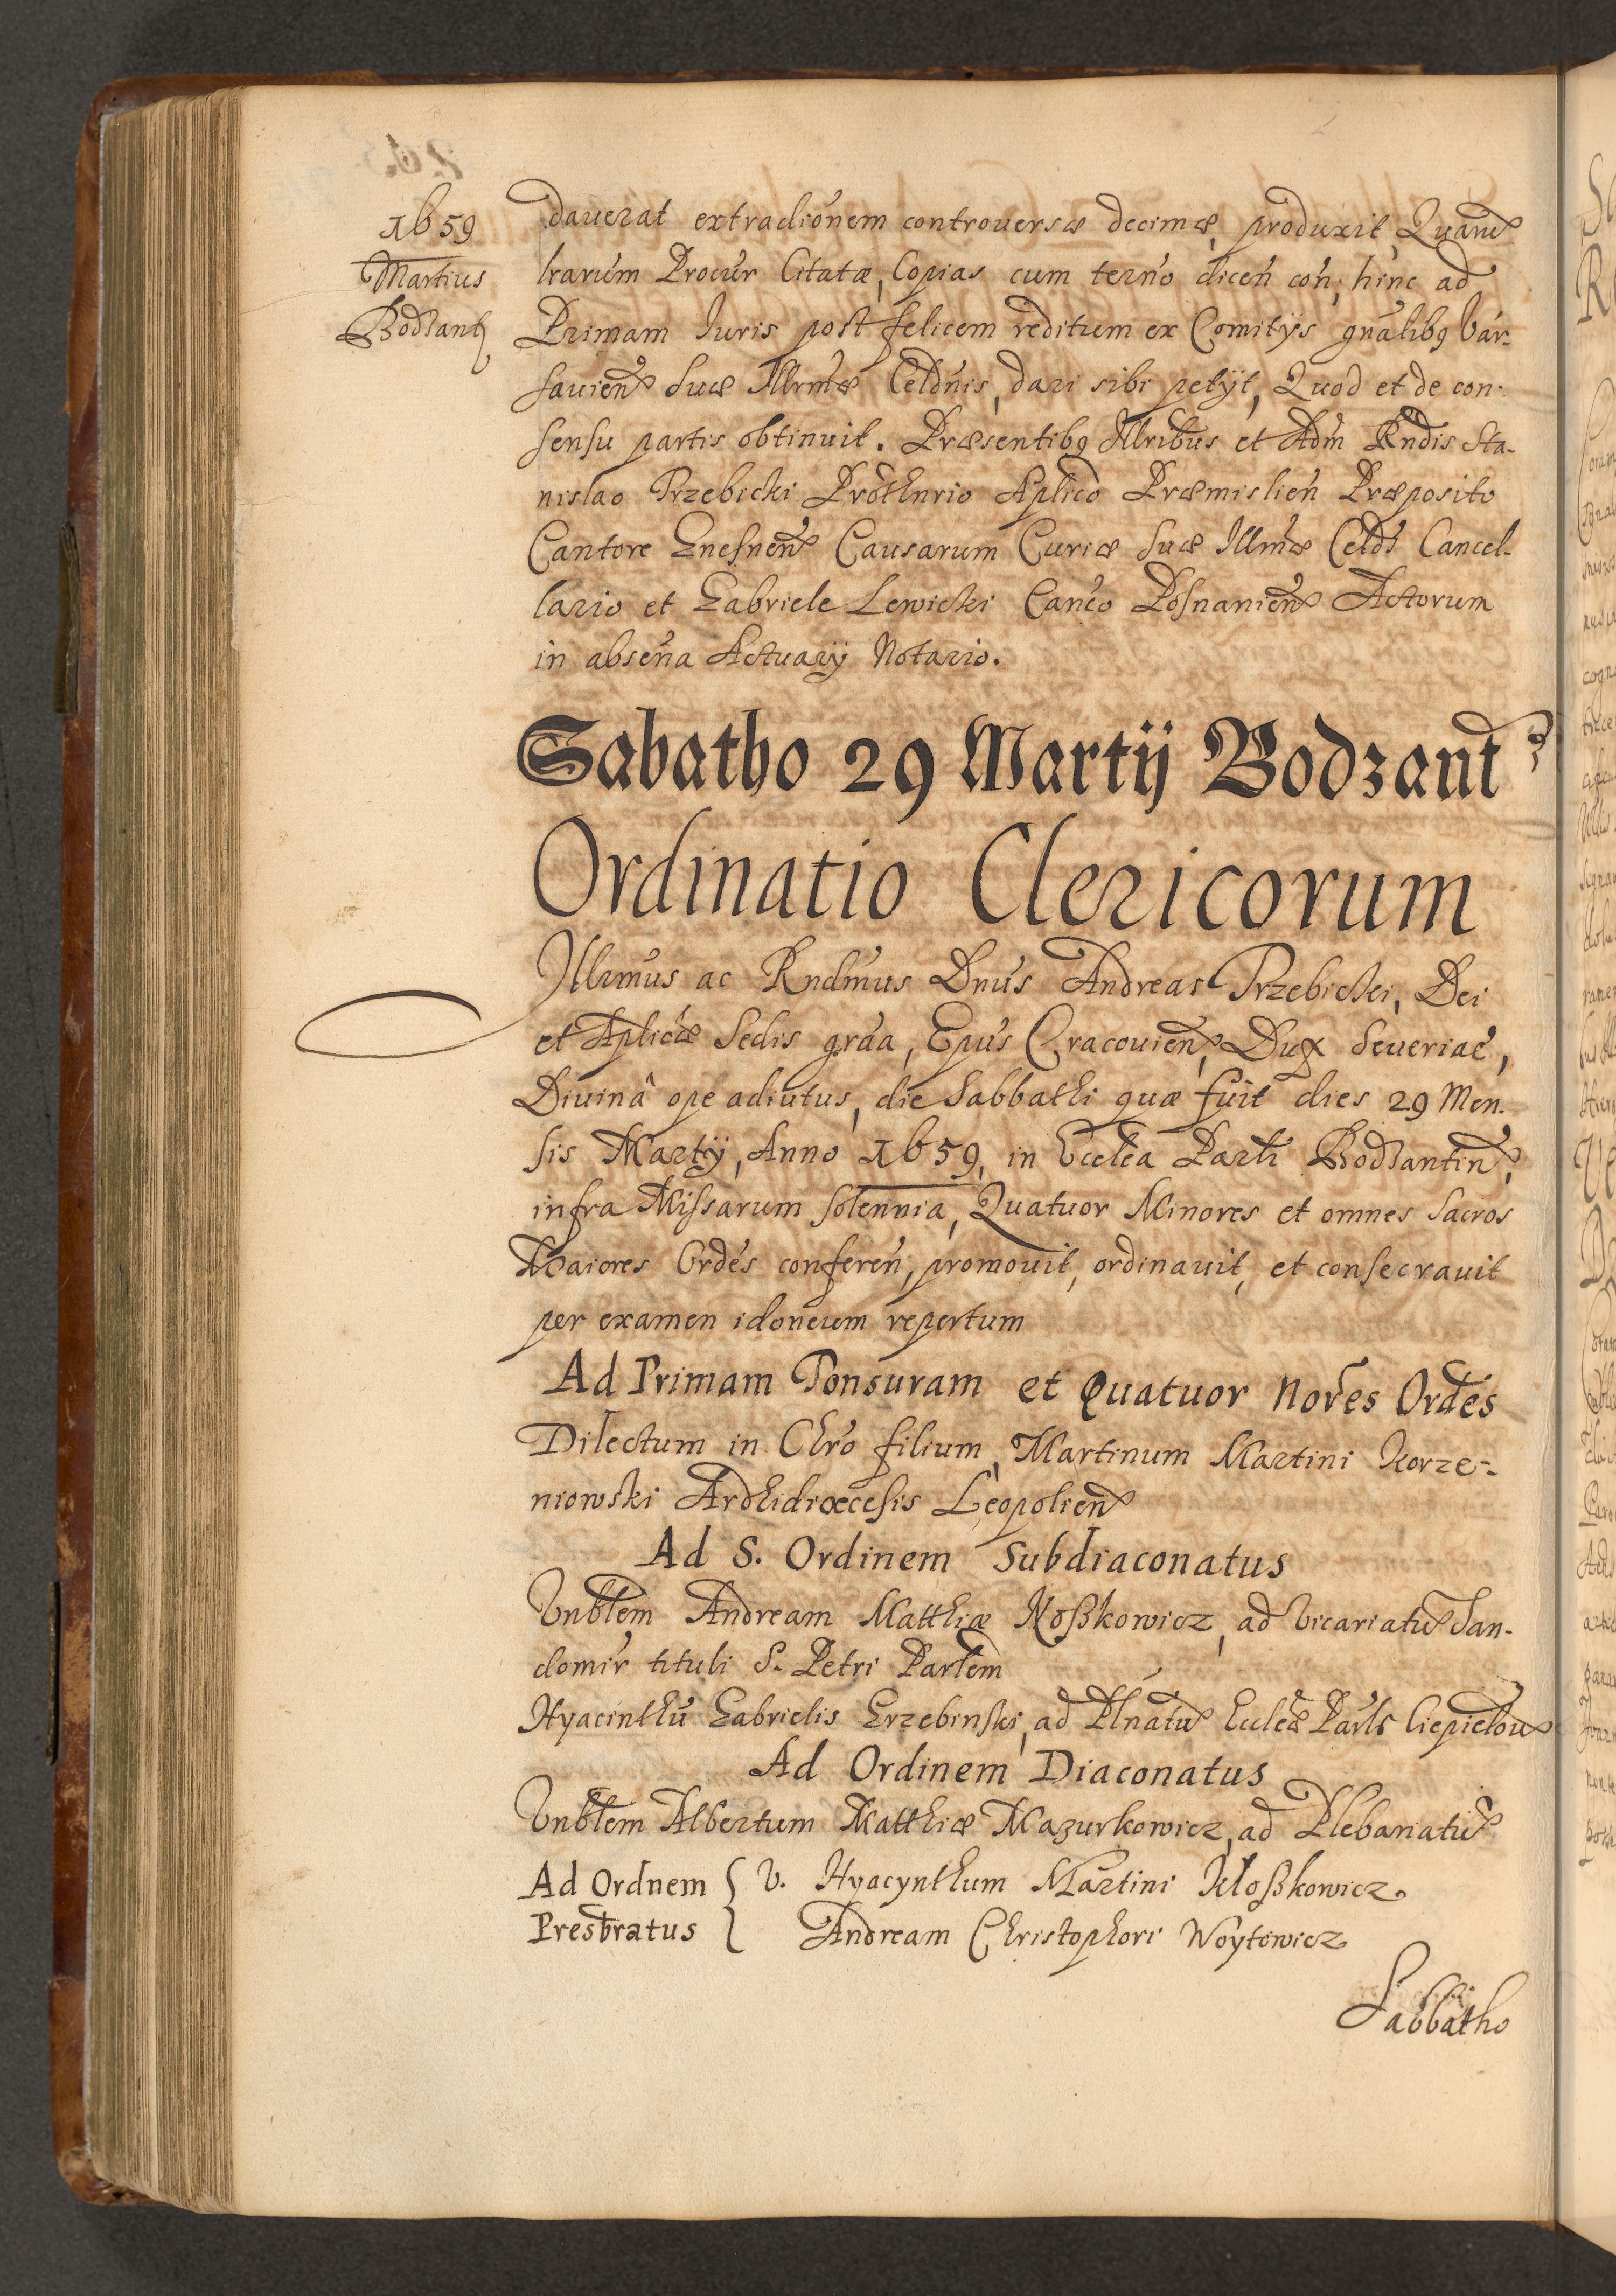 1659
Martius
Bodzant
dauerat extradiónem controuersæ decimæ, produxit, Quarū
lrarum Procur Citatæ, Copias cum termō diceń coń, hinc ad
Primam Iuris post felicem reditum ex Comitÿs gnálibq Var-
sauień Suæ Illrmæ Celdńis, dari sibi petÿt, Quod et de con-
sensu partis obtinuit. Præsentibq Illribus et Adm Rndis Sta-
nislao Trzebicki Prothnrio Aplico Præmislień Præposito
Cantore Gnesneń Causarum Curiæ Suæ Illmæ Celds Cancel-
lario et Gabriele Lewicki Canco Posnanień Actorum
in abseńa Actuarÿ Notario.
Sabatho 29 Martÿ Bodzant
Ordinatio Clericorum
Illrmus ac Rndmus Dnus Andreas Trzebicki, Dei
et Aplicæ Sedis gráa, Epus Cracouień, Dux Seueriae,
Diuinâ ope adiutus, die Sabbathi quæ fuit dies 29 Men-
sis Martÿ, Anno 1659, in Ecclea Parli Bodzantiń,
infra Missarum solennia, Quatuor Minores et omnes Sacros
Maiores Ordés confereń, promouit, ordinauit, et consecrauit
per examen idoneum repertum
Ad Primam Tonsuram et Quatuor Nores Ordés
Dilectum in Chro filium, Martinum Martini Korze-
niowski Archidiœcesis Leopolień
Ad S. Ordinem Subdiaconatus
Vnblem Andream Matthiæ Noßkowicz, ad Vicariatū San-
domir tituli S. Petri Parlem
Hyacinthū Gabrielis Grzebinski, ad Plnatū Eccleæ Parls Ciepielou
Ad Ordinem Diaconatus
Vnblem Albertum Matthiæ Mazurkowicz, ad Plebanatū
Ad Ordnem { V. Hyacynthum Martini Kloßkowicz.
Presbratus { Andream Christophori Woytowicz
Sabbatho